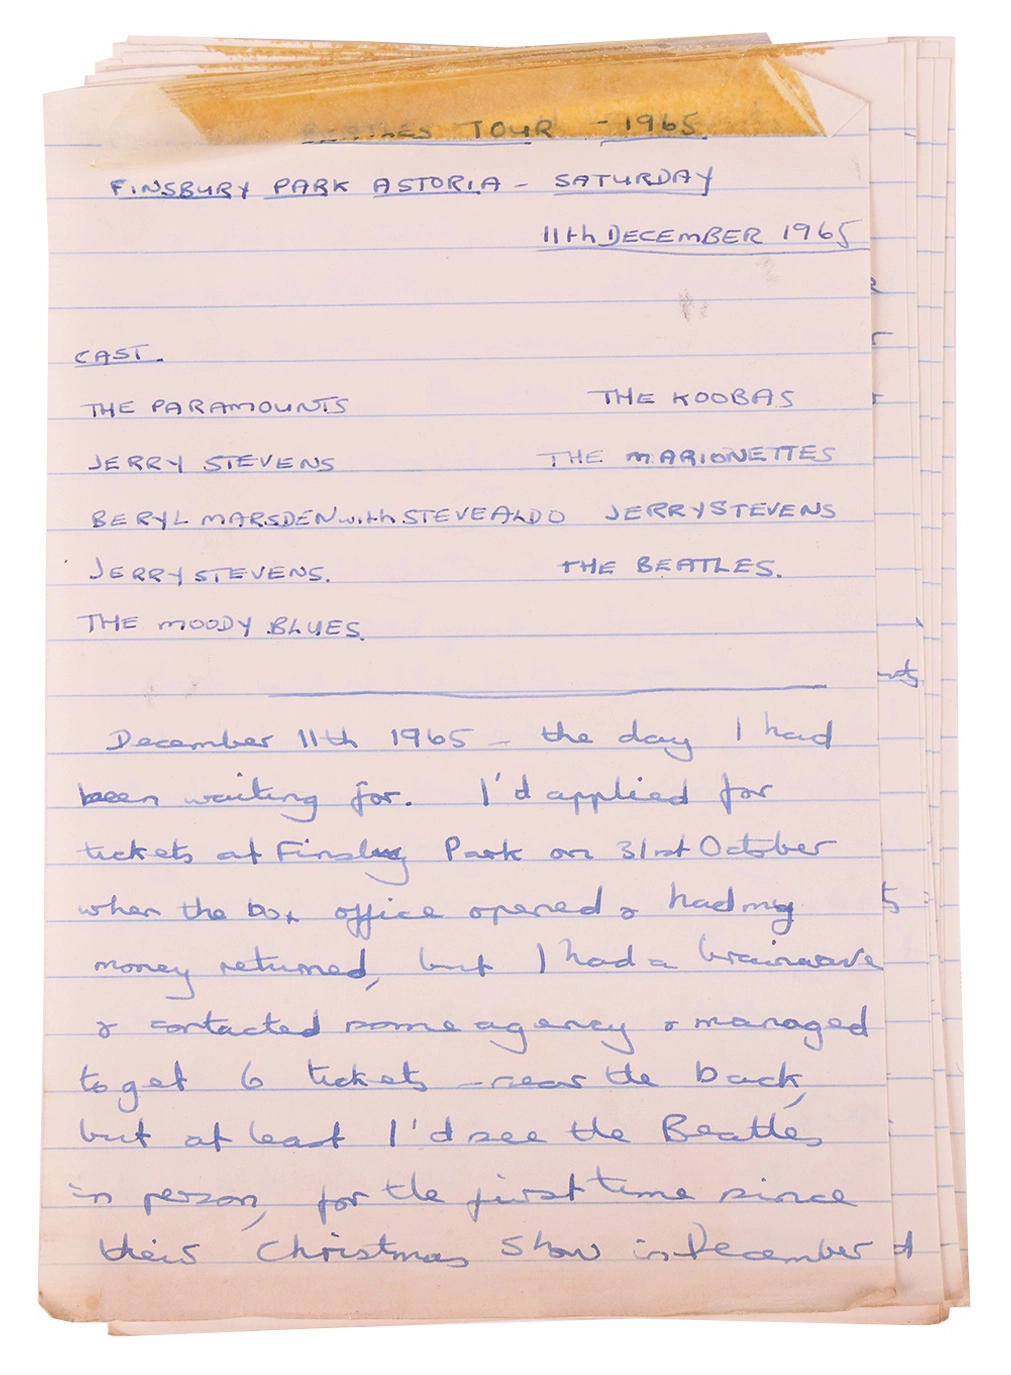 BEATLES TOUR - 1965.
FINSBURY PARK ASTORIA - SATURDAY
11th DECEMBER 1965
CAST.
THE PARAMOUNTS THE KOOBAS
JERRY STEVENS THE MARIONETTES
BERYL MARSDEN with STEVE ALDO JERRY STEVENS
JERRY STEVENS. THE BEATLES.
THE MOODY BLUES.
December 11th 1965 - the day I had
been waiting for. I'd applied for
tickets at Finsbury Park on 31st October
when the box office opened & had my
money returned, but I had a brainwave
& contacted some agency & managed
to get 6 tickets - near the back,
but at least I'd see the Beatles
in person, for the first time since
their Christmas Show in December